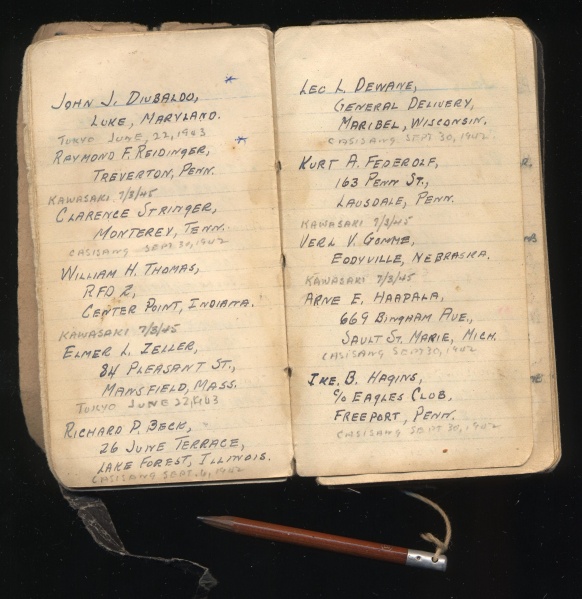 John J. Diubaldo,
Luke, Maryland.
Tokyo June, 22, 1943
Raymond F. Reidinger,
Treverton, Penn.
Kawasaki 7/3/45
Clarence Stringer,
Monterey, Tenn.
Casisang Sept. 30, 1942
William H. Thomas,
RFD 2,
Center Point, Indiana.
Kawasaki 7/3/45
Elmer L. Zeller,
84 Pleasant St.,
Mansfield, Mass.
Tokyo June 22, 1943
Richard P. Beck,
26 June Terrace,
Lake Forest, Illinois.
Casisang Sept. 6, 1942
Leo L. Dewane,
General Delivery,
Maribel, Wisconsin.
Casisang Sept 30, 1942
Kurt A. Federolf,
163 Penn St.,
Lausdale, Penn.
Kawasaki 7/3/45
Verl V. Gomme,
Eddyville, Nebraska.
Kawasaki 7/3/45
Arne E. Haapala,
669 Bingham Ave.,
Sault St. Marie, Mich.
Casisang Sept 30, 1942
Ike. B. Hagins,
c/o Eagles Club,
Freeport, Penn.
Casisang Sept 30, 1942